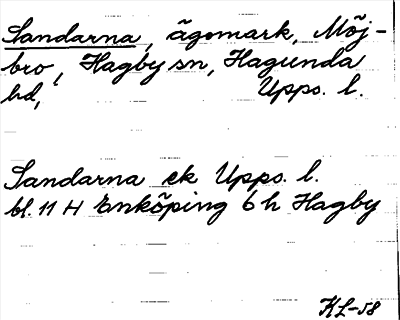 Sandarna, ägomark, Möj-
bro, Hagby sn, Hagunda
hd, Upps. l.
Sandarna ek Upps. l.
bl. 11 H Enköping 6 h Hagby
KL-58